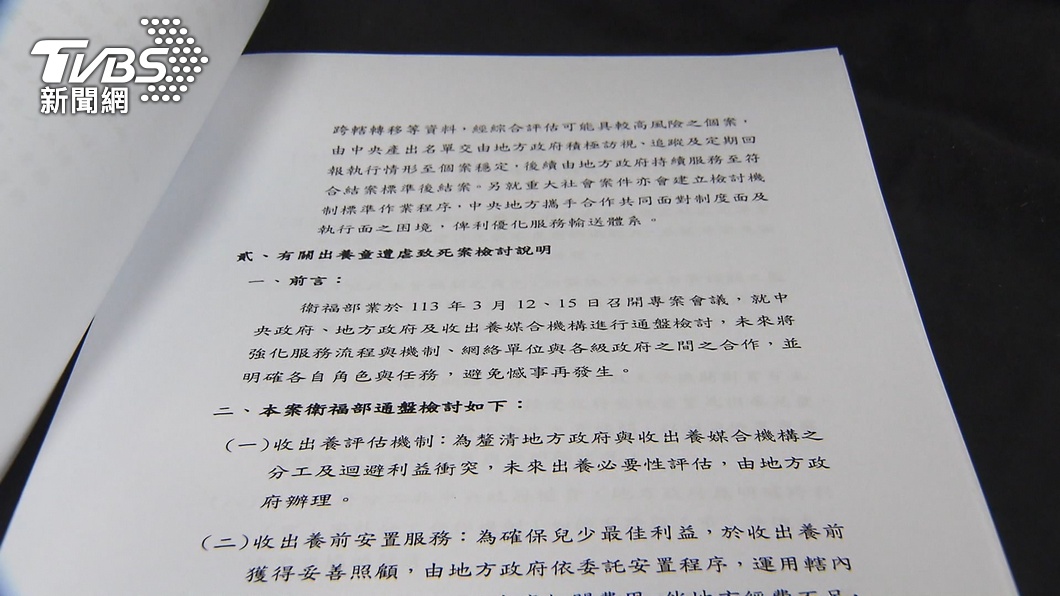 TVBS
新聞網
跨轄轉移等資料，經綜合評估可能具較高風險之個案，
由中央產出名單交由地方政府積極訪視、追蹤及定期回
報執行情形至個案穩定，後續由地方政府持續服務至符
合結案標準後結案。另就重大社會案件亦會建立檢討機
制標準作業程序，中央地方攜手合作共同面對制度面及
執行面之困境，俾利優化服務輸送體系。
貳、有關出養童遭虐致死案檢討說明
一、前言：
衛福部業於 113 年 3 月 12、15 日召開專案會議，就中
央政府、地方政府及收出養媒合機構進行通盤檢討，未來將
強化服務流程與機制、網絡單位與各級政府之間之合作，並
明確各自角色與任務，避免憾事再發生。
二、本案衛福部通盤檢討如下：
(一)收出養評估機制：為釐清地方政府與收出養媒合機構之
分工及迴避利益衝突，未來出養必要性評估，由地方政
府辦理。
(二)收出養前安置服務：為確保兒少最佳利益，於收出養前
獲得妥善照顧，由地方政府依委託安置程序，運用轄內